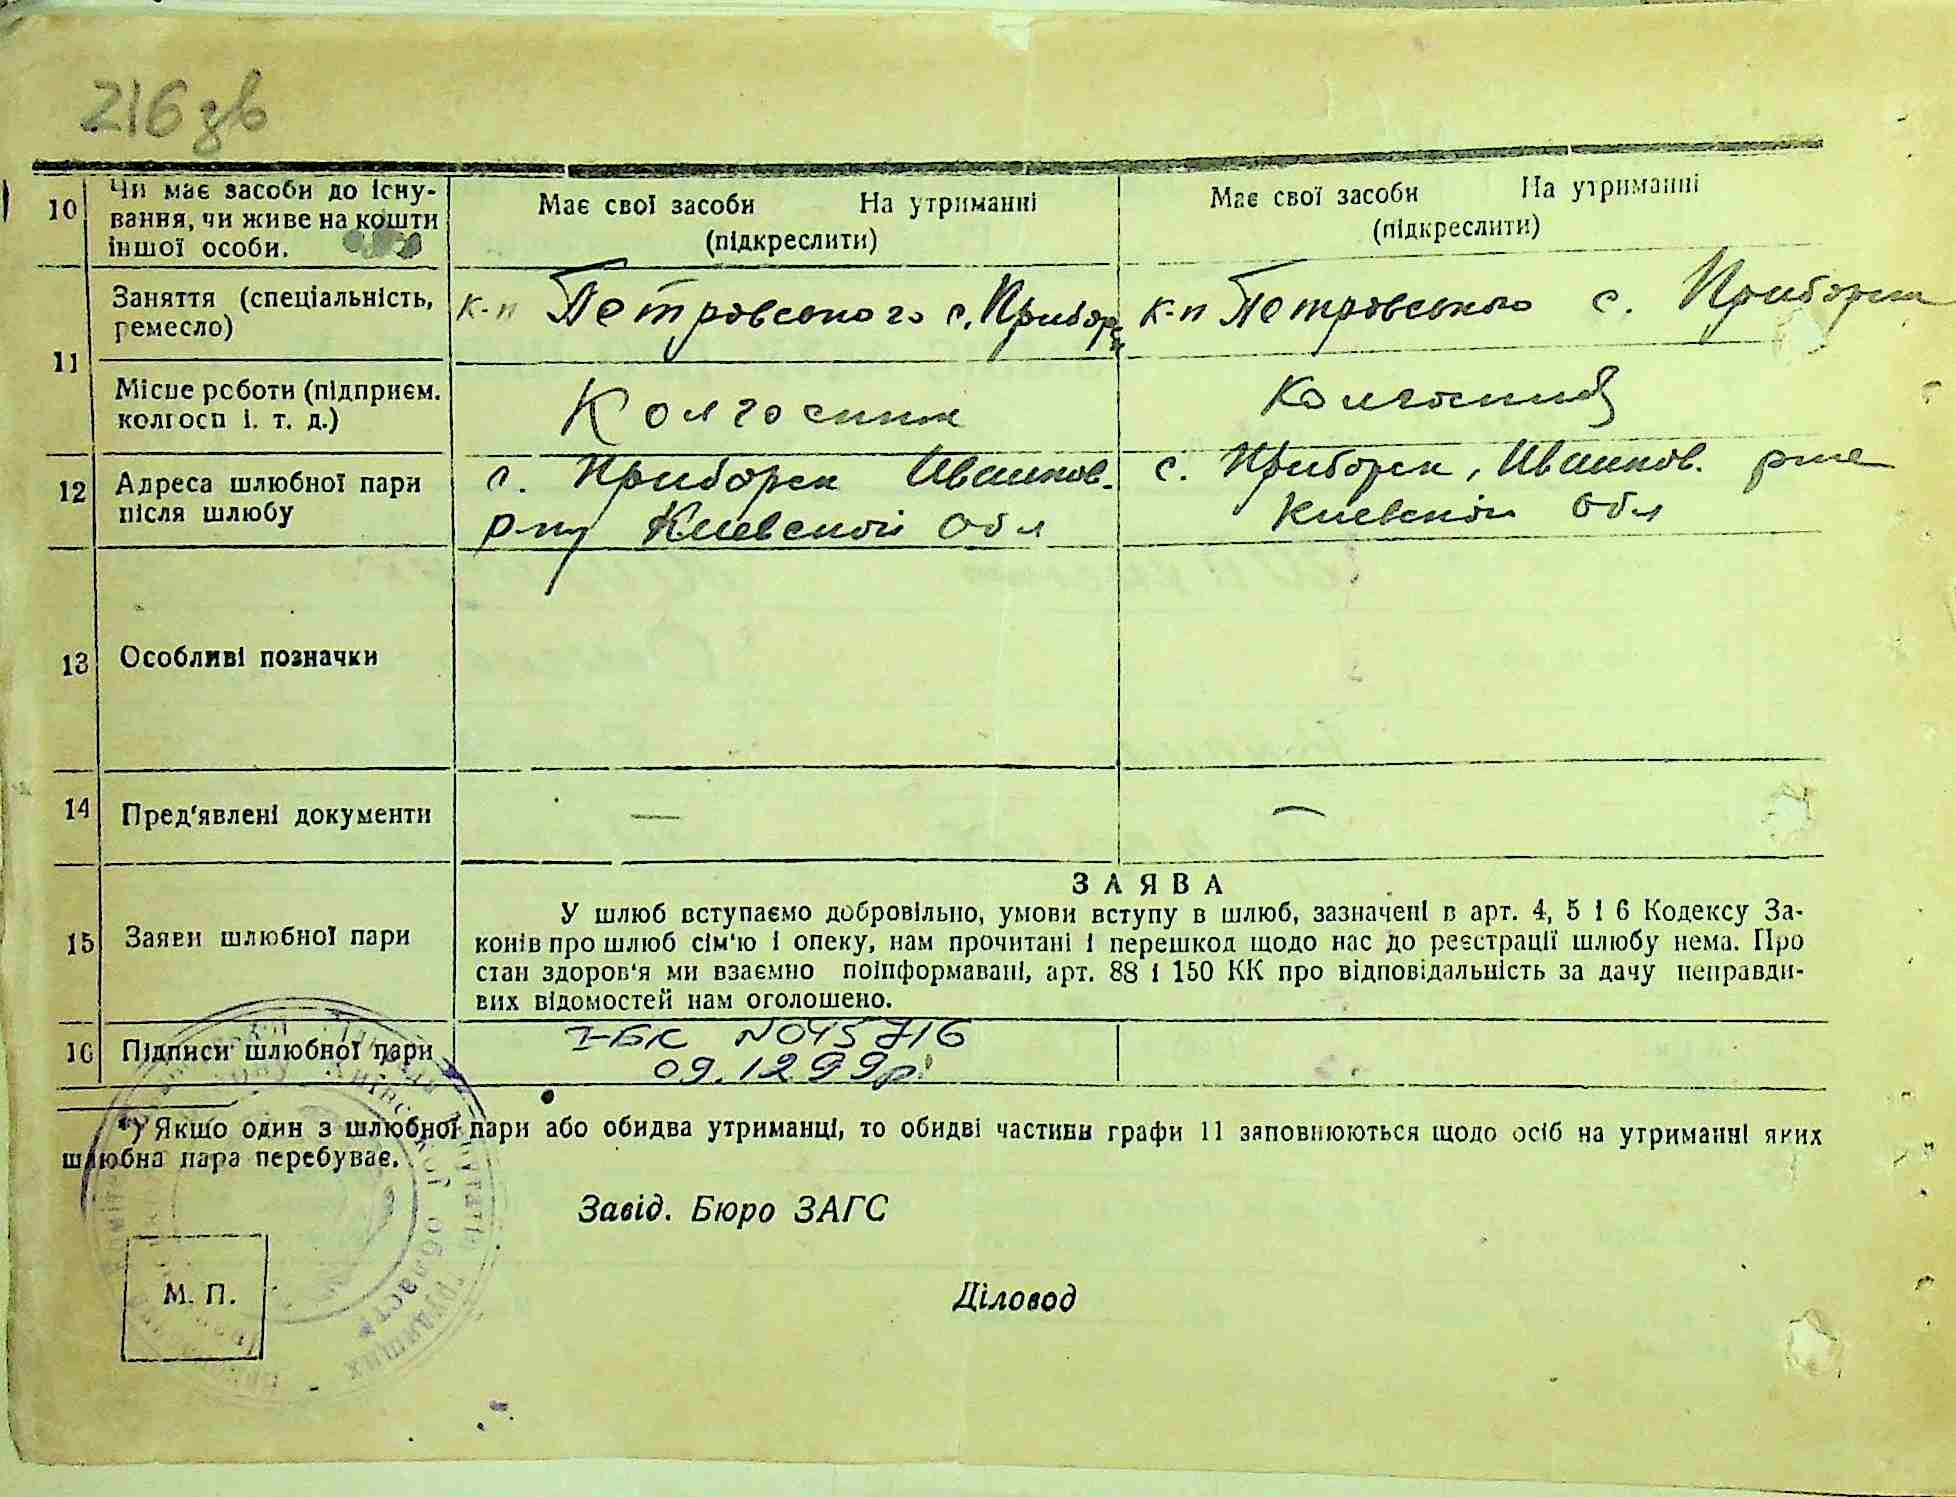 216 зв
10 Чи має засоби до існу-
вання, чи живе на кошти
іншої особи.
Має свої засоби На утриманні
(підкреслити)
Має свої засоби На утриманні
(підкреслити)
11 Заняття (спеціальність,
ремесло)
к-п Петровського с. Приборск
к-п Петровського с. Приборск
Місце роботи (підприєм.
колгосп і. т. д.)
Колгоспник
12 Адреса шлюбної пари
після шлюбу
с. Приборск Иванков.
р-ну Киевской обл
с. Приборск, Иванков. р-на
Киевской обл
13 Особливі позначки
14 Пред'явлені документи
— —
15 Заяви шлюбної пари
ЗАЯВА
У шлюб вступаємо добровільно, умови вступу в шлюб, зазначені в арт. 4, 5 і 6 Кодексу За-
конів про шлюб сім'ю і опеку, нам прочитані і перешкод щодо нас до реєстрації шлюбу нема. Про
стан здоров'я ми взаємно поінформавані, арт. 88 і 150 КК про відповідальність за дачу неправди-
вих відомостей нам оголошено.
16 Підписи шлюбної пари
І-БК №045716
09.12.99р.
*) Якщо один з шлюбної пари або обидва утриманці, то обидві частини графи 11 заповнюються щодо осіб на утриманні яких
шлюбна пара перебуває.
Завід. Бюро ЗАГС
М. П.
Діловод
Київської області